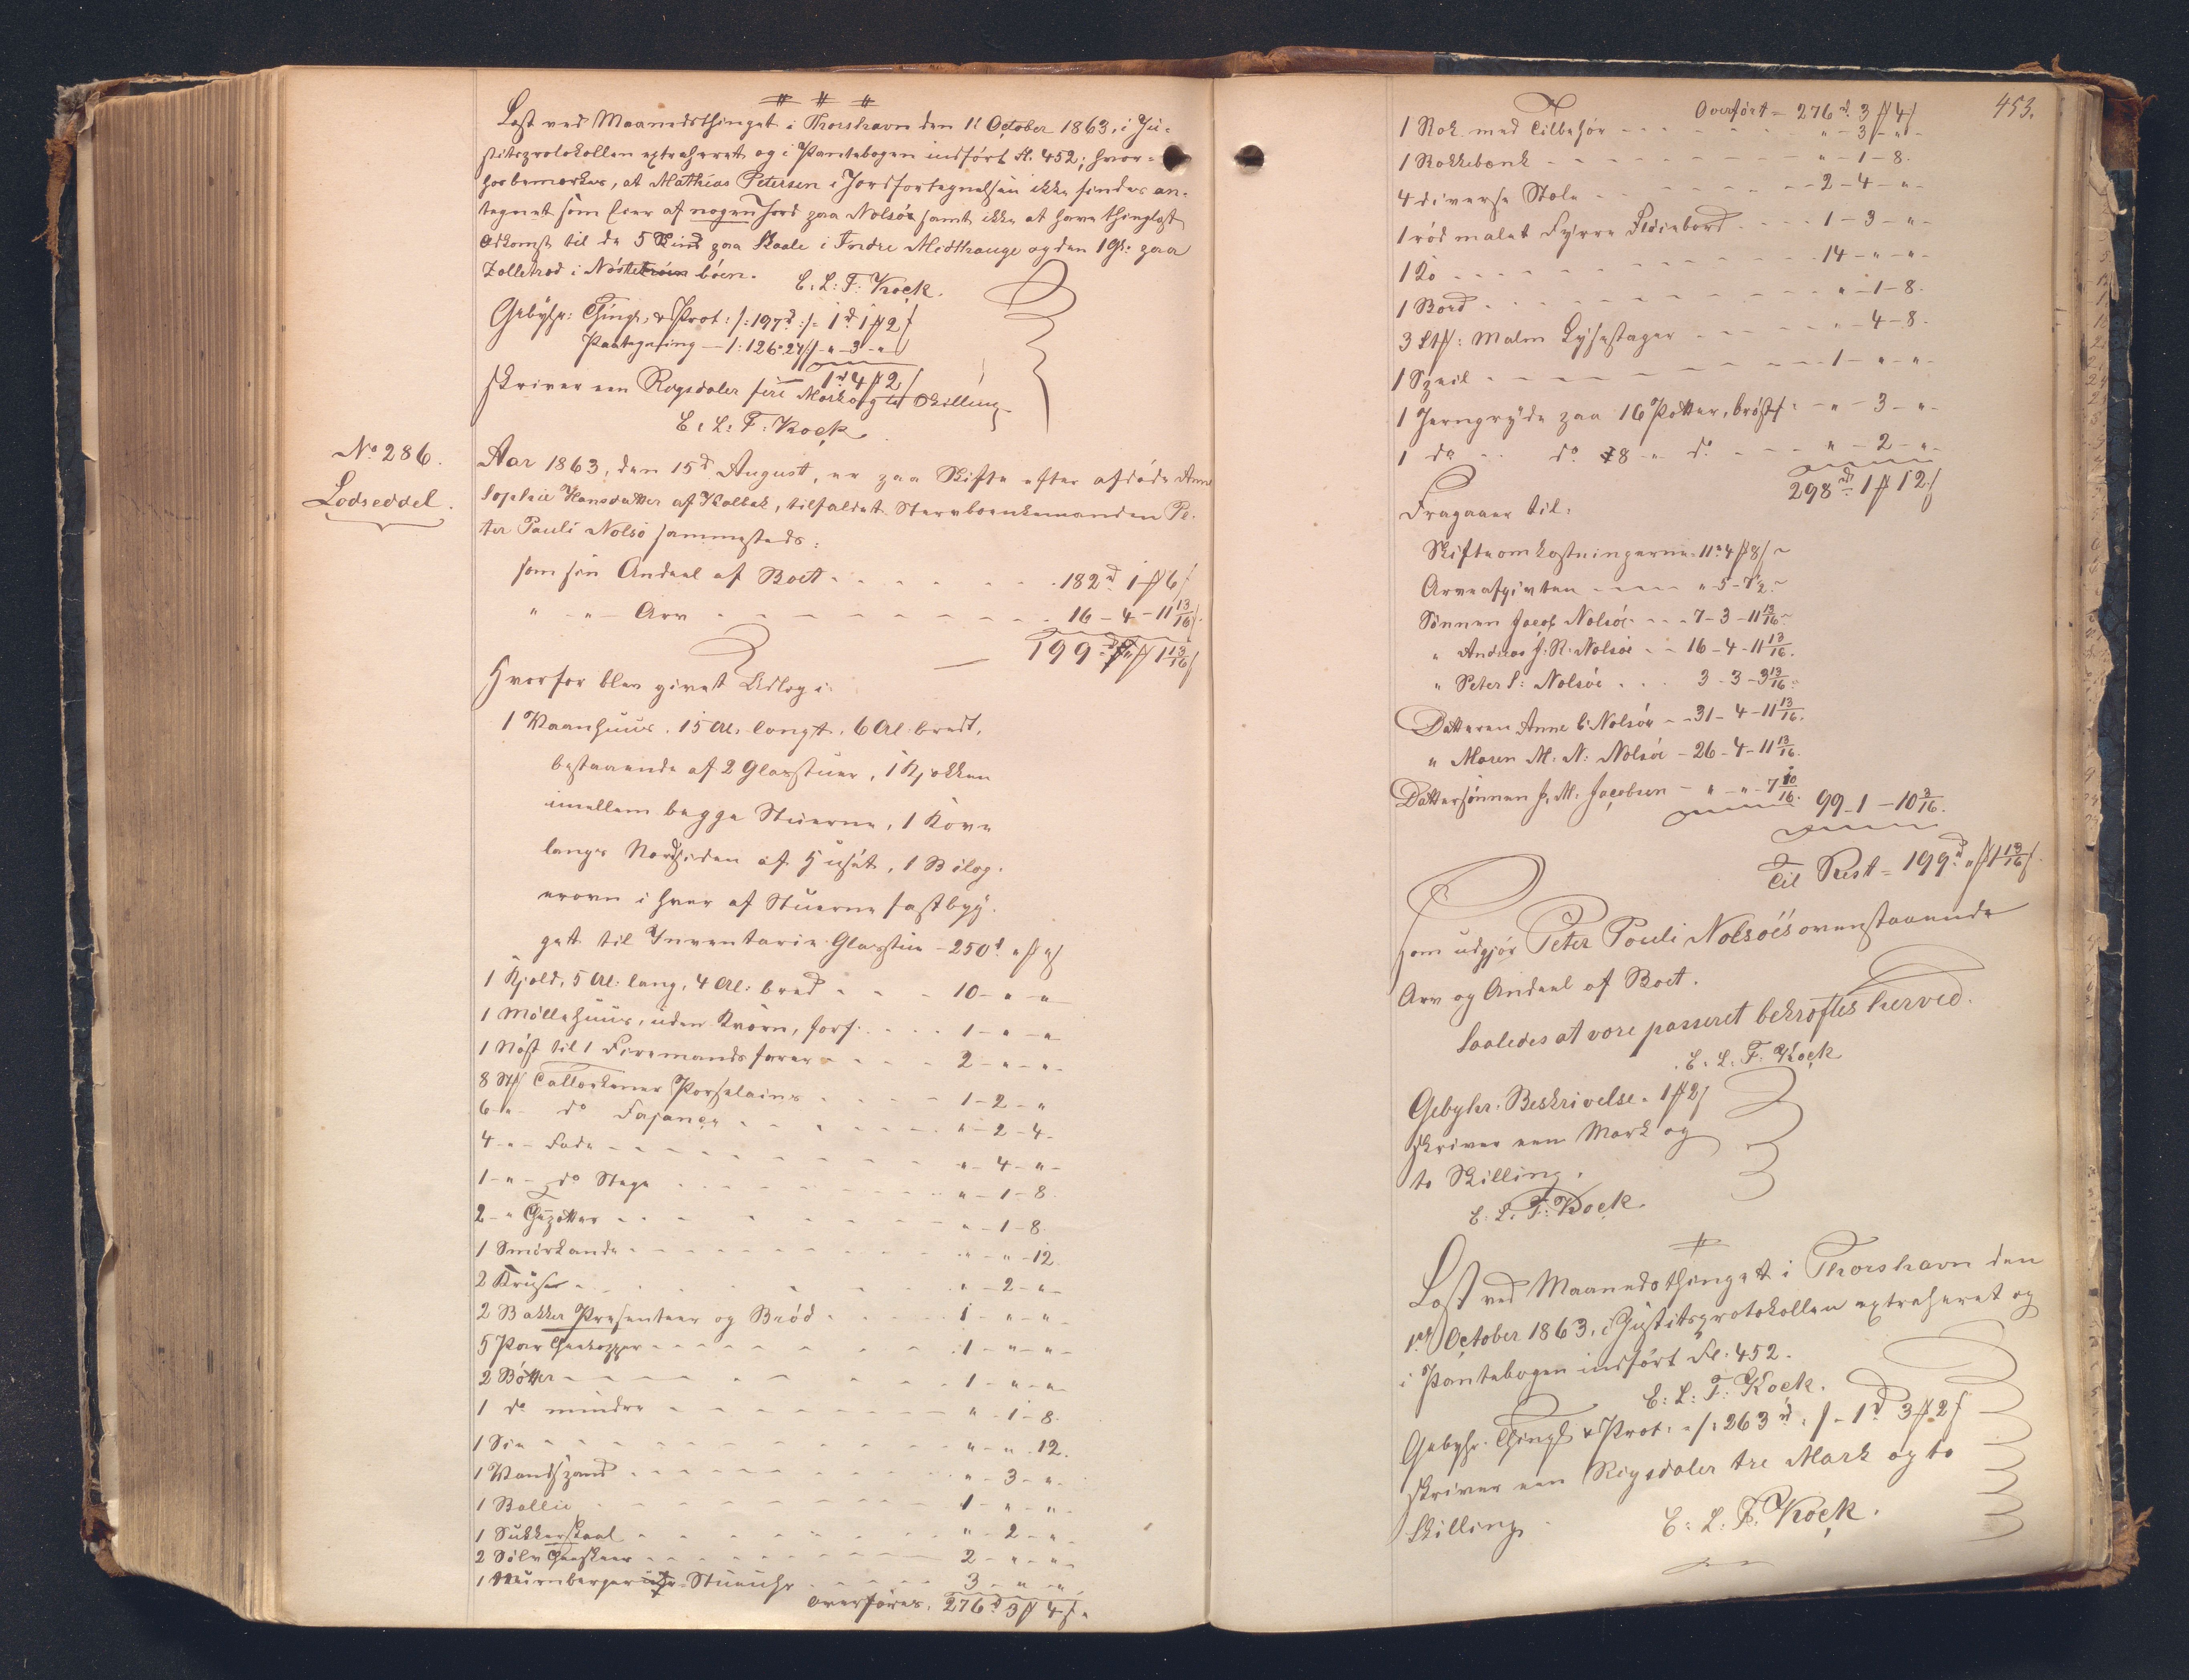 Læst ved Maanedsthinget i Thorshavn den 1' October 1863, i Ju-
stitsprotokollen extraheret og i Pantebogen indført fl. 452; hvor-
hos bemærkes, at Mathias Petersen i Jordfortegnelsen ikke findes an-
tegnet som Eier af nogen Jord paa Nolsöe samt ikke at have thinglyst
Adkomst til de 5 Skind paa Skaale i Indre Midthauge og den 1 Gl: paa
Tolletrød i bøen.
E. L: F: Kock.
Gebyhr: Thingl. & Prot: /:197 rd:/ - 1 rd 1 ₻ 2 ß
Paategning — /:126 " 24:/ - " - 3 - "
1 rd 4 ₻ 2 ß
skriver een Rigsdaler fire Mark og to Skilling
E: L: F: Kock
No 286.
Lodseddel.
Aar 1863, den 15d August, er paa Skifte efter afdøde Anne
Sophie Hansdatter af Kalbak, tilfaldet Stervboenkemanden Pe-
ter Pauli Nolsö sammesteds:
som sin Andeel af Boet - - - 182 rd 1 ₻ 6 ß
" - " - Arv - - - 16 - 4 - 11 13/16 ß.
199 rd " ₻ 1 13/16 ß
hvorfor blev givet Udlog i:
1 Vaanhuus, 15 Al. langt, 6 Al. bredt,
bestaaende af 2 Glasstuer, 1 Kjøkken
imellem begge Stuerne, 1 Kove
langs Nordsiden af Huset, 1 Bilæg-
erovn i hver af Stuerne fastbyg-
get til Inventarie Glasstue - 250 rd " ₻ " ß
1 Kjold, 5 Al: lang, 4 Al: bred - - - 10 - " - "
1 Møllehuus, uden Kværn, forf: - - - 1 - " - "
1 Nøst til 1 Firemandsfarer - - - 2 - " - "
8 Stk Tallerkener Porselains - - - 1 - 2 - "
6 - " - do Fajance - - - " - 2 - 4 -
4 - " - Fade - - - " - 4 - " -
1 - " - do Stege - - - " - 1 - 8
2 - " Thepotter - - - " - 1 - 8
1 Smørkande - - - " - " - 12
2 Kruse - - - " - 2 - "
2 Bakker Presenteer og Brød - - - 1 - " - "
5 Par Theekopper - - - 1 - " - "
2 Bøtter - - - 1 - " - "
1 do mindre - - - " - 1 - 8
1 Sie - - - " - " - 12.
1 Vandspand - - - " - 3 - "
1 Ballie - - - 1 - " - "
1 Sukkerskaal - - - " - 2 - "
2 Sølv Theeskeer - - - 2 - " - "
1 Nürnberger Stueuhr - - - 3 - " - "
overføres. 276 rd 3 ₻ 4 ß
453.
Overført = 276 rd 3 ₻ 4 ß
1 Rok med Tilbehør - - - " - 3 - "
1 Rokkebænk - - - " - 1 - 8.
4 diverse Stole - - - 2 - 4 - "
1 rød malet Fyrre Sidiebord - - - 1 - 3 - "
1 Ko - - - 14 - " - "
1 Bord - - - " - 1 - 8.
3 Stk: Malm Lysestager - - - " - 4 - 8.
1 Speil - - - 1 - " - "
1 Jerngryde paa 16 Potter, brøstf: - " - 3 - "
1 do - - do 8 - " do - - - " - 2 - "
298 rd 1 ₻ 12 ß
Fragaaer til:
Skifteomkostningerne 11 " 4 ₻ 8 ß
Arveafgivten - - - " - 5 - 7 1/2
Sönnen Jacob Nolsöe - - - 7 - 3 - 11 13/16
" Andreas J. R. Nolsöe - - 16 - 4 - 11 13/16.
" Peter S: Nolsöe - - - 3 - 3 - 3 13/16
Datteren Anne C. Nolsöe - - 31 - 4 - 11 13/16.
" Maren M. N: Nolsöe - 26 - 4 - 11 13/16.
Dattersönnen J. M. Jacobsen - " - " - 7 10/16. 99 - 1 - 10 3/16.
Til Rest = 199 rd " ₻ 1 13/16 ß.
som udgjör Peter Pouli Nolsöes ovenstaaende
Arv og Andeel af Boet.
Saaledes at være passeret bekræftes herved.
E. L. F: Kock
Gebyhr. Beskrivelse. 1 ₻ 2 ß
skriver een Mark og
to Skilling.
E. L. F: Kock
Læst ved Maanedsthinget i Thorshavn den
1st October 1863, i Justitsprotokollen extraheret og
i Pantebogen indført Fl. 452.
E: L: F: Kock.
Gebyhr. Thingl & Prot: - /:263 rd:/ - 1 rd 3 ₻ 2 ß
skriver een Rigsdaler tre Mark og to
Skilling
E: L. F. Kock.